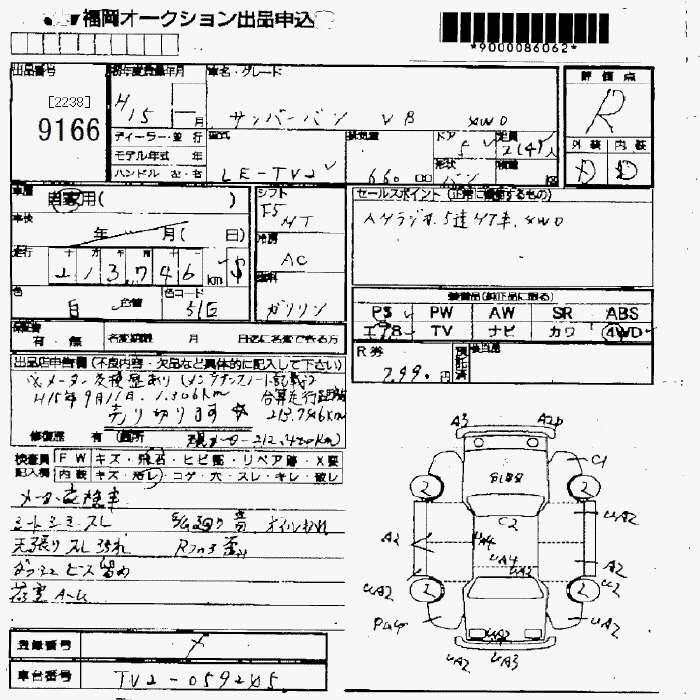 福岡オークション出品申込
*9000086062*
出品番号
[2238]
9166
初年度登録年月
H15年
月
車名・グレード
サンバーバン VB 4WD
評価点
R
外装 内装
D D
ディーラー・並行
モデル年式 年
ハンドル 左・右
型式
LE-TV2
排気量
660
ドア
5
形状
バン
定員
2(4)人
積載
車歴
自家用( )
車検
年 月( 日)
走行
十 万 千 百 十
213,746 km
色
白
色替
色コード
51E
シフト
F5
MT
冷房
AC
燃料
ガソリン
セールスポイント (正常に機能するもの)
AMラジオ、5速MT車、4WD
装備品(純正品に限る)
PS PW AW SR ABS
エアB TV ナビ カワ 4WD
保証書
有・無
名変期限 月 日迄に名変できる方
R券
7,990円
預託済
出品店申告欄 (不良内容・欠品など具体的に記入して下さい)
※メーター交換歴あり(メンテナンスノート記載)
H15年9月11日、1,306km 合算走行距離
売り切ります ☆ 213,746km
修復歴 有 (箇所 現メーター212,440km)
検査員記入欄
FW キズ・飛石・ヒビ割・リペア跡・X要
内装 キズ・汚レ・コゲ・穴・スレ・キレ・破レ
メーター交換車
シートシミ・スレ E/G廻り音 オイルもれ
天張りスレ汚れ Rフロア歪み
ダッシュビス留め
荷室A・U
A3 A2P
C1
2 2
UA2
C2
A2
UA4
UA4
UA2
A2
UA2
2 2
U2
UA2
UA2
UA2
UA2 UA3
登録番号
車台番号
TV2-059245